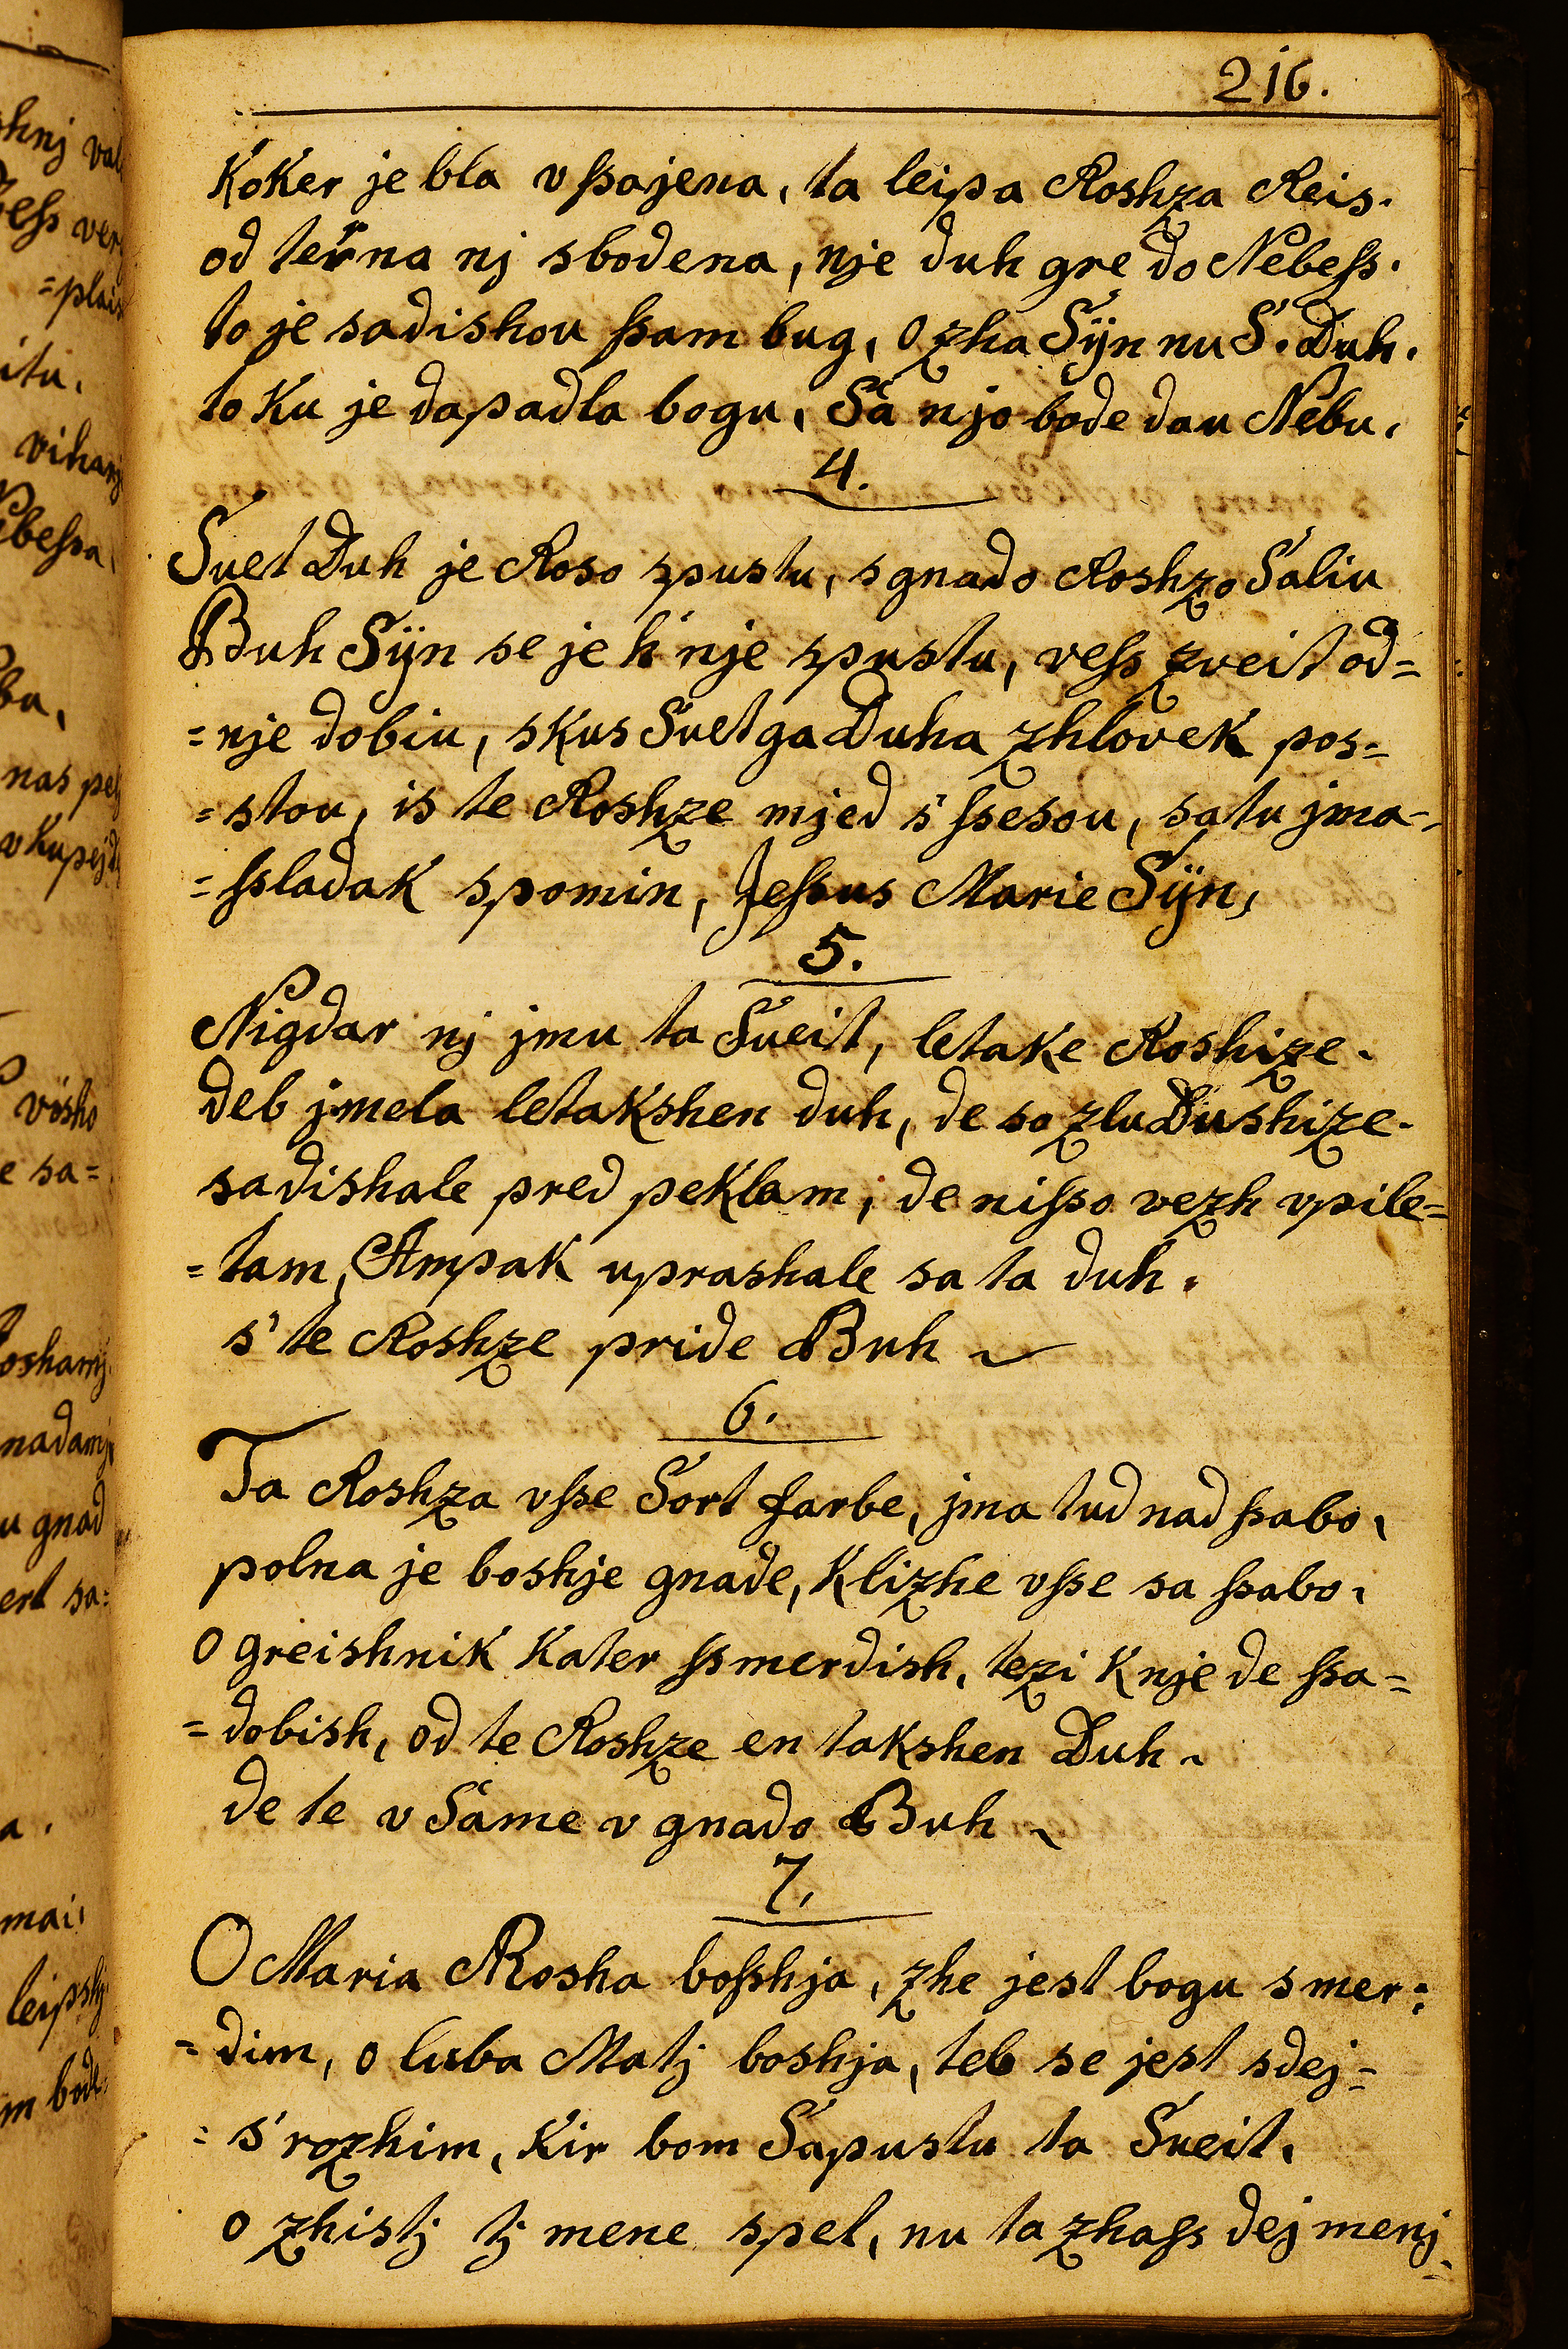 216.
Koker je bla v ſsajena, ta leipa Roshza Reis.
od terna nj sbodena, nje duh gre do Nebeſs.
to je sadishou ſsam bug, Ozha Sÿn nu S. Duh.
to ku je dapadla bogu, Sa njo bode dau Nebu,
4.
Suet Duh je Roso spustu, s gnado Roshzo Saliu
Buh Sÿn se je k nje spustu, veſs zveit od=
=nje dobiu, skus Suetga Duha zhlovek pos=
=stou, is te Roshze mjed s' ſsesou, satu jma=
=ſsladak spomin, Jeſsus Marie Sÿn,
5.
Nigdar nj jmu ta Sueit, letake Roshize.
deb jmela letakshen duh, de so zlu Dushize.
sadishale pred peklam, de niſso vezh vpile=
=tam, Ampak uprashale sa ta duh.
s' te Roshze pride Buh
6.
Ta Roshza vſse Sort farbe, jma tud nad ſsabo,
polna je boshje gnade, Klizhe vſse sa ſsabo,
O greishnik Kater ſsmerdish, tezi K nje de ſsa=
=dobish, od te Roshze en takshen Duh
de te v Same v gnado Buh
7.
O Maria Rosha boſshja, zhe jest bogu smer=
=dim, o luba Matj boshja, teb se jest sdej=
=s' rozhim, Kir bom Sapustu ta Sueit,
o zhistj tj mene spet, nu ta zhaſs dej menj